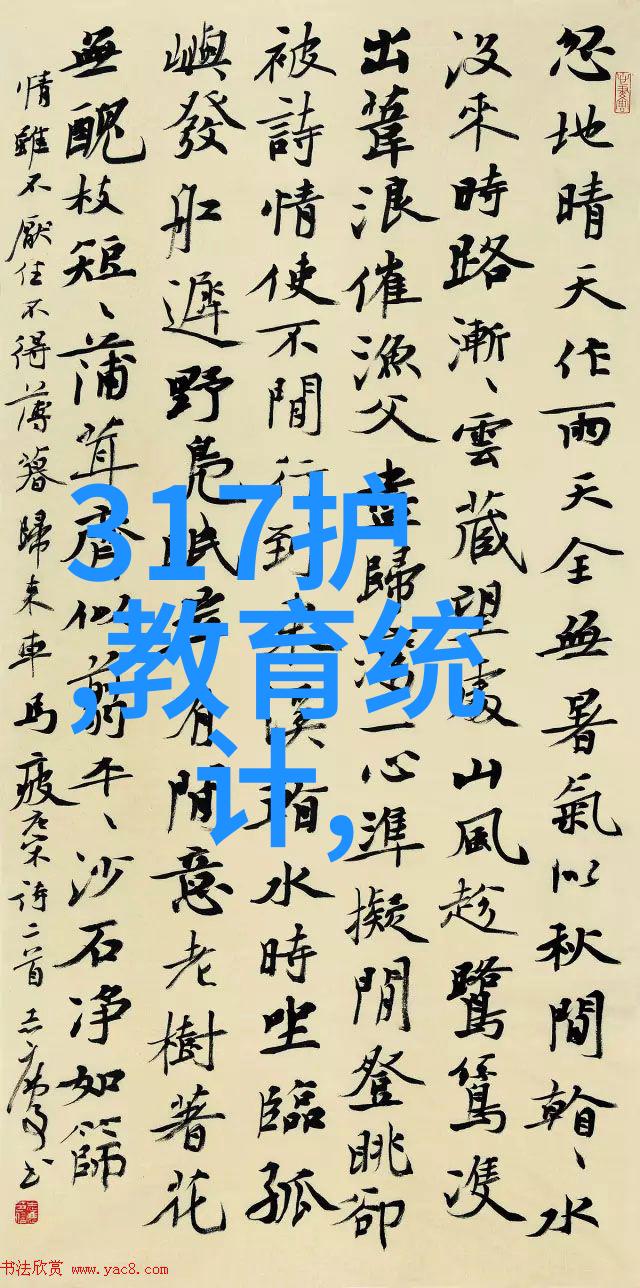 忽地晴天作雨天全無暑氣似秋間
水沒來時路漸雲藏望處山風趁鷺鷥
出葦浪催漁父歸一心準擬閒登眺卻
被詩情使不閒行到水時坐臨孤
嶼發船遲野鳧眠岸有閒意老樹著花
無醜枝短短蒲茸齊似翦平平沙石净如篩
情雖不厭住不得薄暮歸來車馬疲
詩二首
317护
,教育统
计,
书法欣赏 www.yac8.com